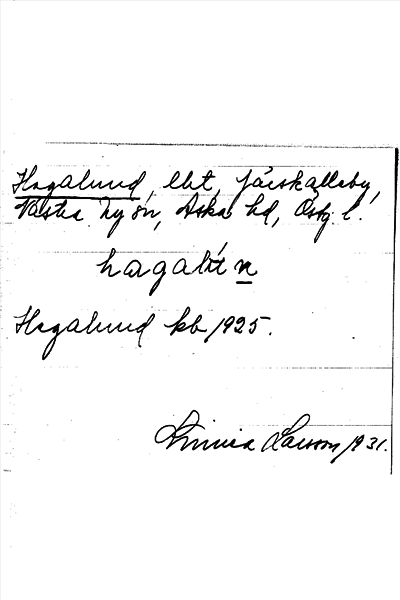 Hagalund, lht, Järskälleby,
Västra Ny sn, Aska hd, Östg. l.
hagalún
Hagalund kb 1925.
Linnéa Larsson 1931.